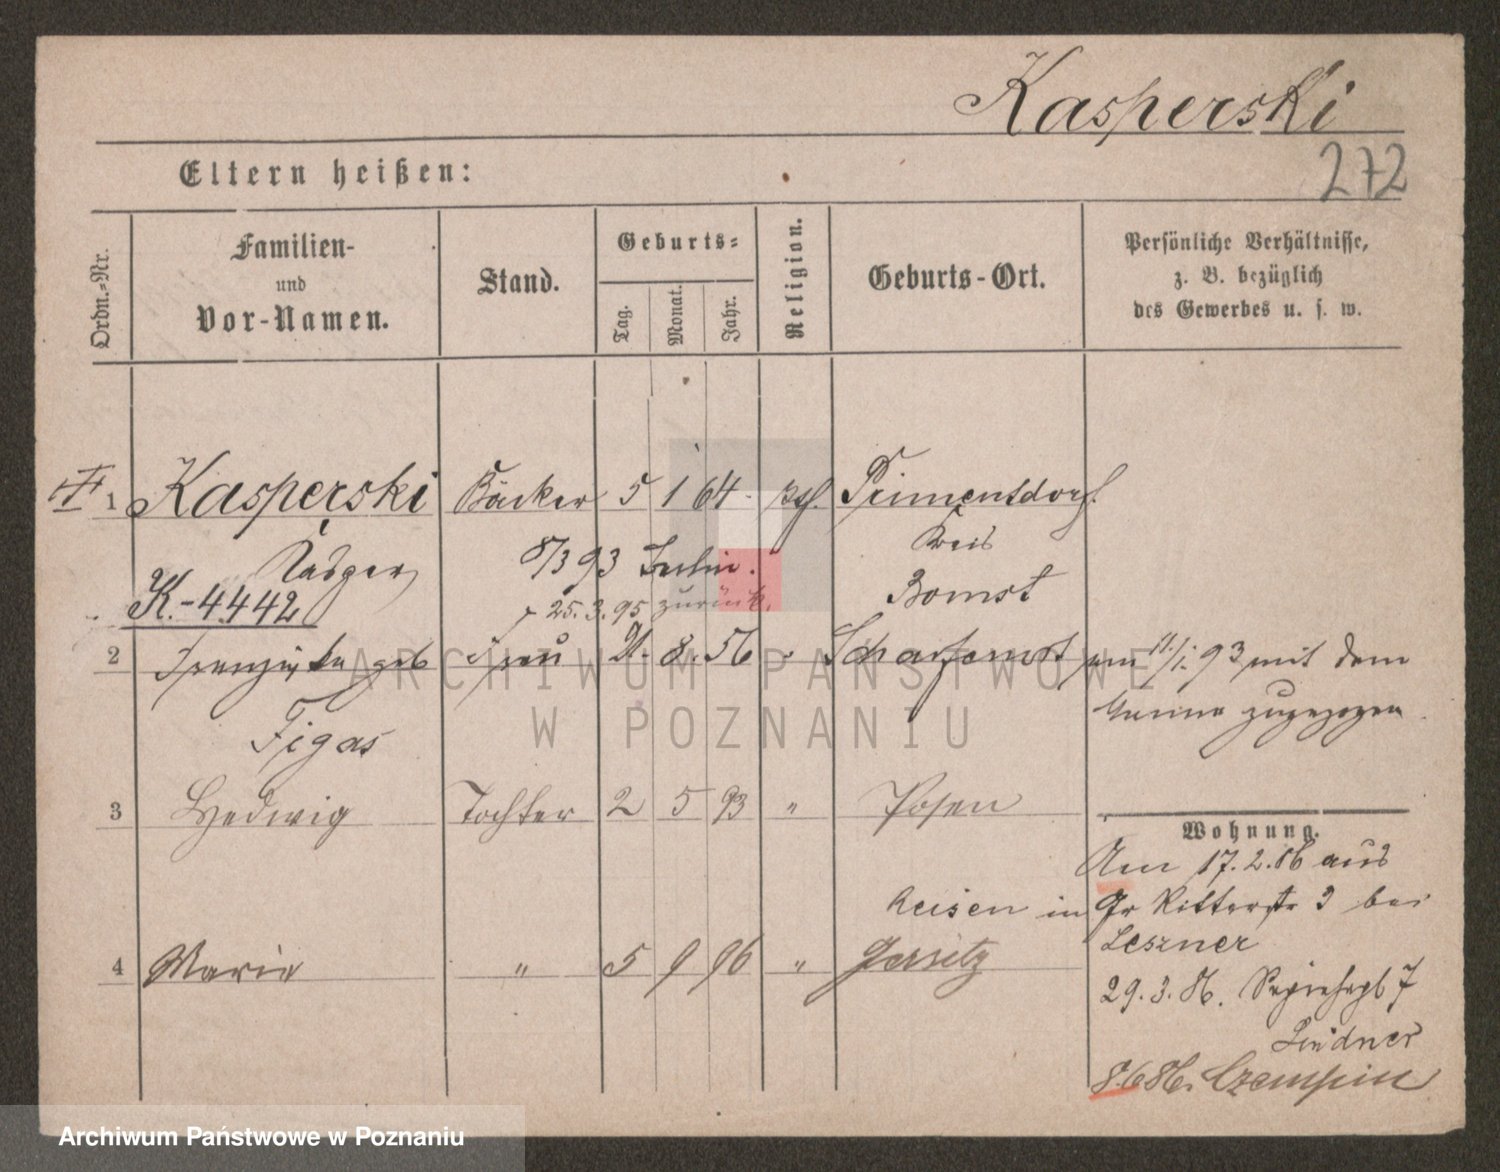 Kasperski
272
Eltern heißen:
Ordn.-Nr.
Familien-
und
Vor-Namen.
Stand.
Geburts-
Tag.
Monat.
Jahr.
Religion.
Geburts-Ort.
Persönliche Verhältnisse,
z. B. bezüglich
des Gewerbes u. s. w.
1 Kasperski Bäcker 5 1 64 kth. Primentsdorf.
Kasper 8/3 93 Berlin. Kreis
K.-4442 25.3.95 zurück. Bomst
2 geb Frau 21. 8. 56 " am 11/1. 93 mit dem
Figas Manne zugezogen
3 Hedwig Tochter 2 5 93 " Posen
Wohnung.
Am 17.2.86 aus
Reisen in Gr Ritterstr 3 bei
Leszner
4 Marie " 5 9 96 " Jersitz
29.3.86. 7
Lindner
8.6 86. Czempin
ARCHIWUM PAŃSTWOWE
W POZNANIU
Archiwum Państwowe w Poznaniu